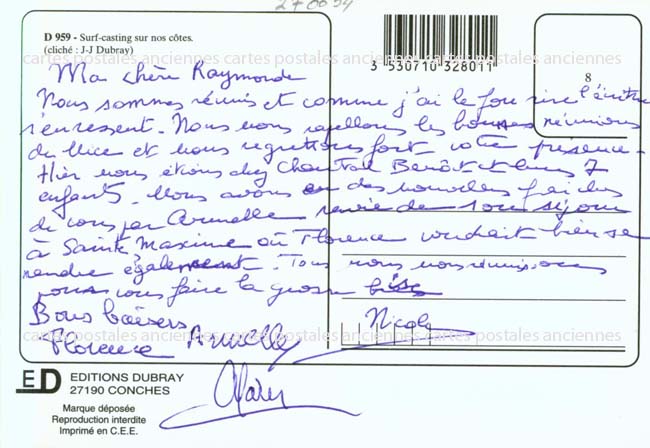 270694
D 959 - Surf-casting sur nos côtes.
(cliché : J-J Dubray)
cartes postales anciennes cartes postales anciennes cartes postales anciennes
3 530710 328011
8
Ma chère Raymonde
Nous sommes réunis et comme j'ai le fou rire l'écriture
s'en ressent. Nous nous rappellons les bonnes réunions
de Nice et nous regrettons fort votre présence -
Hier nous étions chez Chantal Benoît et leurs 7
enfants. Nous avons eu des nouvelles fraîches
de vous par Armelle revie de son séjour
à Sainte Maxime où Florence voudrait bien se
rendre également. Tous nous nous réunissons
pour vous faire la grosse bise
Bons baisers
Nicole
cartes postales anciennes cartes postales anciennes cartes postales anciennes
Florence Armelle
Alain
ED EDITIONS DUBRAY
27190 CONCHES
Marque déposée
Reproduction interdite
Imprimé en C.E.E.